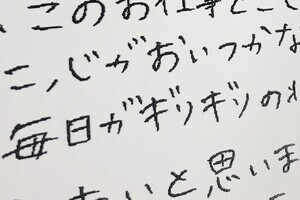 このお仕事とこ
こ,じがおいつかな
毎日がギリギリの
ないと思いま